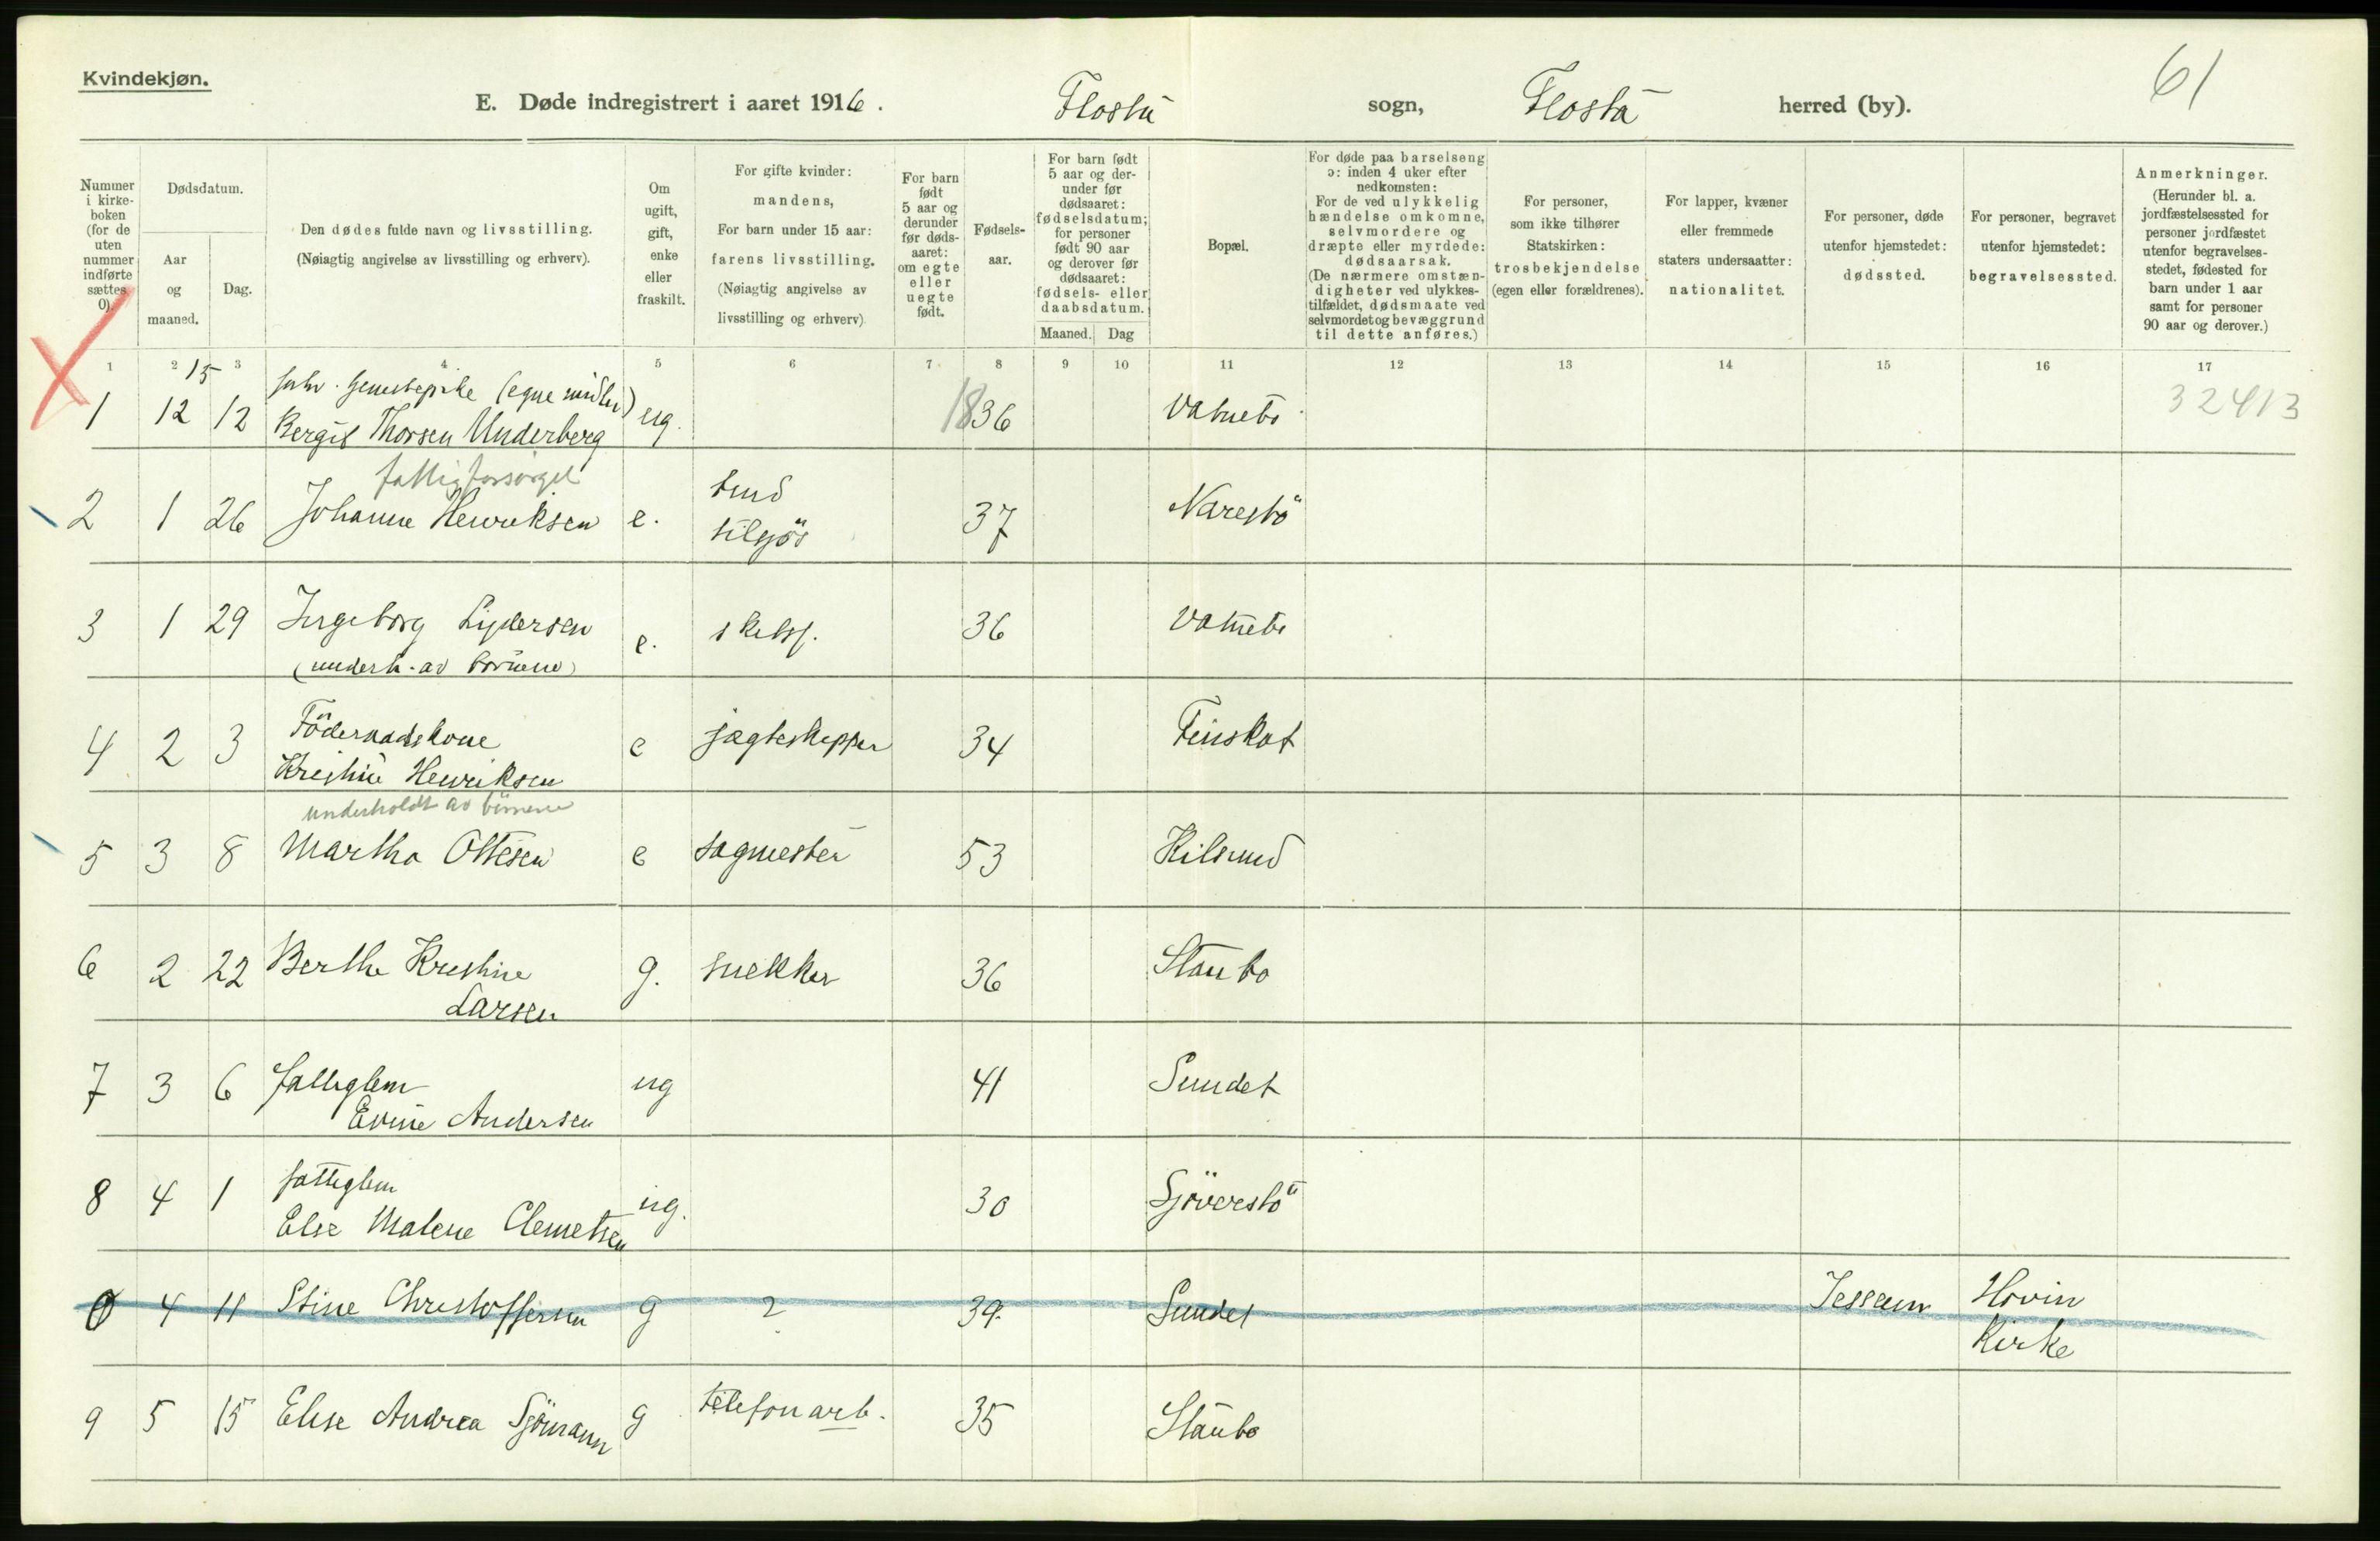 Kvindekjøn.
E. Døde indregistrert i aaret 1916. Flosta sogn, Flosta herred (by).
61
Nummer i kirke-boken (for de uten nummer indførte sættes 0).
Dødsdatum.
Aar og maaned.
Dag.
Den dødes fulde navn og livsstilling.
(Nøiagtig angivelse av livsstilling og erhverv).
Om ugift, gift, enke eller fraskilt.
For gifte kvinder: mandens,
For barn under 15 aar: farens livsstilling.
(Nøiagtig angivelse av livsstilling og erhverv)
For barn født 5 aar og derunder før døds-aaret: om egte eller uegte født.
Fødsels-aar.
For barn født 5 aar og der-under før dødsaaret: fødselsdatum; for personer født 90 aar og derover før dødsaaret: fødsels- eller daabsdatum.
Maaned. Dag
Bopæl.
For døde paa barselseng ɔ: inden 4 uker efter nedkomsten:
For de ved ulykkelig hændelse omkomne, selvmordere og dræpte eller myrdede: dødsaarsak.
(De nærmere omstæn-digheter ved ulykkes-tilfældet, dødsmaate ved selvmordet og bevæggrund til dette anføres.)
For personer, som ikke tilhører Statskirken: trosbekjendelse (egen eller forældrenes).
For lapper, kvæner eller fremmede staters undersaatter: nationalitet.
For personer, døde utenfor hjemstedet: dødssted.
For personer, begravet utenfor hjemstedet: begravelsessted.
Anmerkninger.
(Herunder bl. a. jordfæstelsessted for personer jordfæstet utenfor begravelses-stedet, fødested for barn under 1 aar samt for personer 90 aar og derover.)
1 2 3 4 5 6 7 8 9 10 11 12 13 14 15 16 17
15 forhv. tjenestepike (egne midler)
1 12 12 Bergit Thorsen Underberg ug. 1836 Vatnebo 32413
fattigforsørget
2 1 26 Johanne Henriksen e. 37 Narestö
3 1 29 Ingeborg Lydersen e. skibsf. 36 Vatnebo
(underh. av börnene)
Föderaadskone
4 2 3 Kristine Henriksen e jagteskipper 34 Finskot
underholdt av börnene
5 3 8 Martha Ottesen e sagmester 53 Kilsund
6 2 22 Berthe Kristine Larsen g. snekker 36 Staubo
7 3 6 fattiglem
Evine Andersen ug 41 Sundet
8 4 1 fattiglem
Else Malene Clemetsen ug. 30 Sjöverstö
0 4 11 Stine Christoffersen g ? 39. Sundet Jessem Hovin Kirke
9 5 15 Elise Andrea Sjömann g telefonarb. 35 Staubo